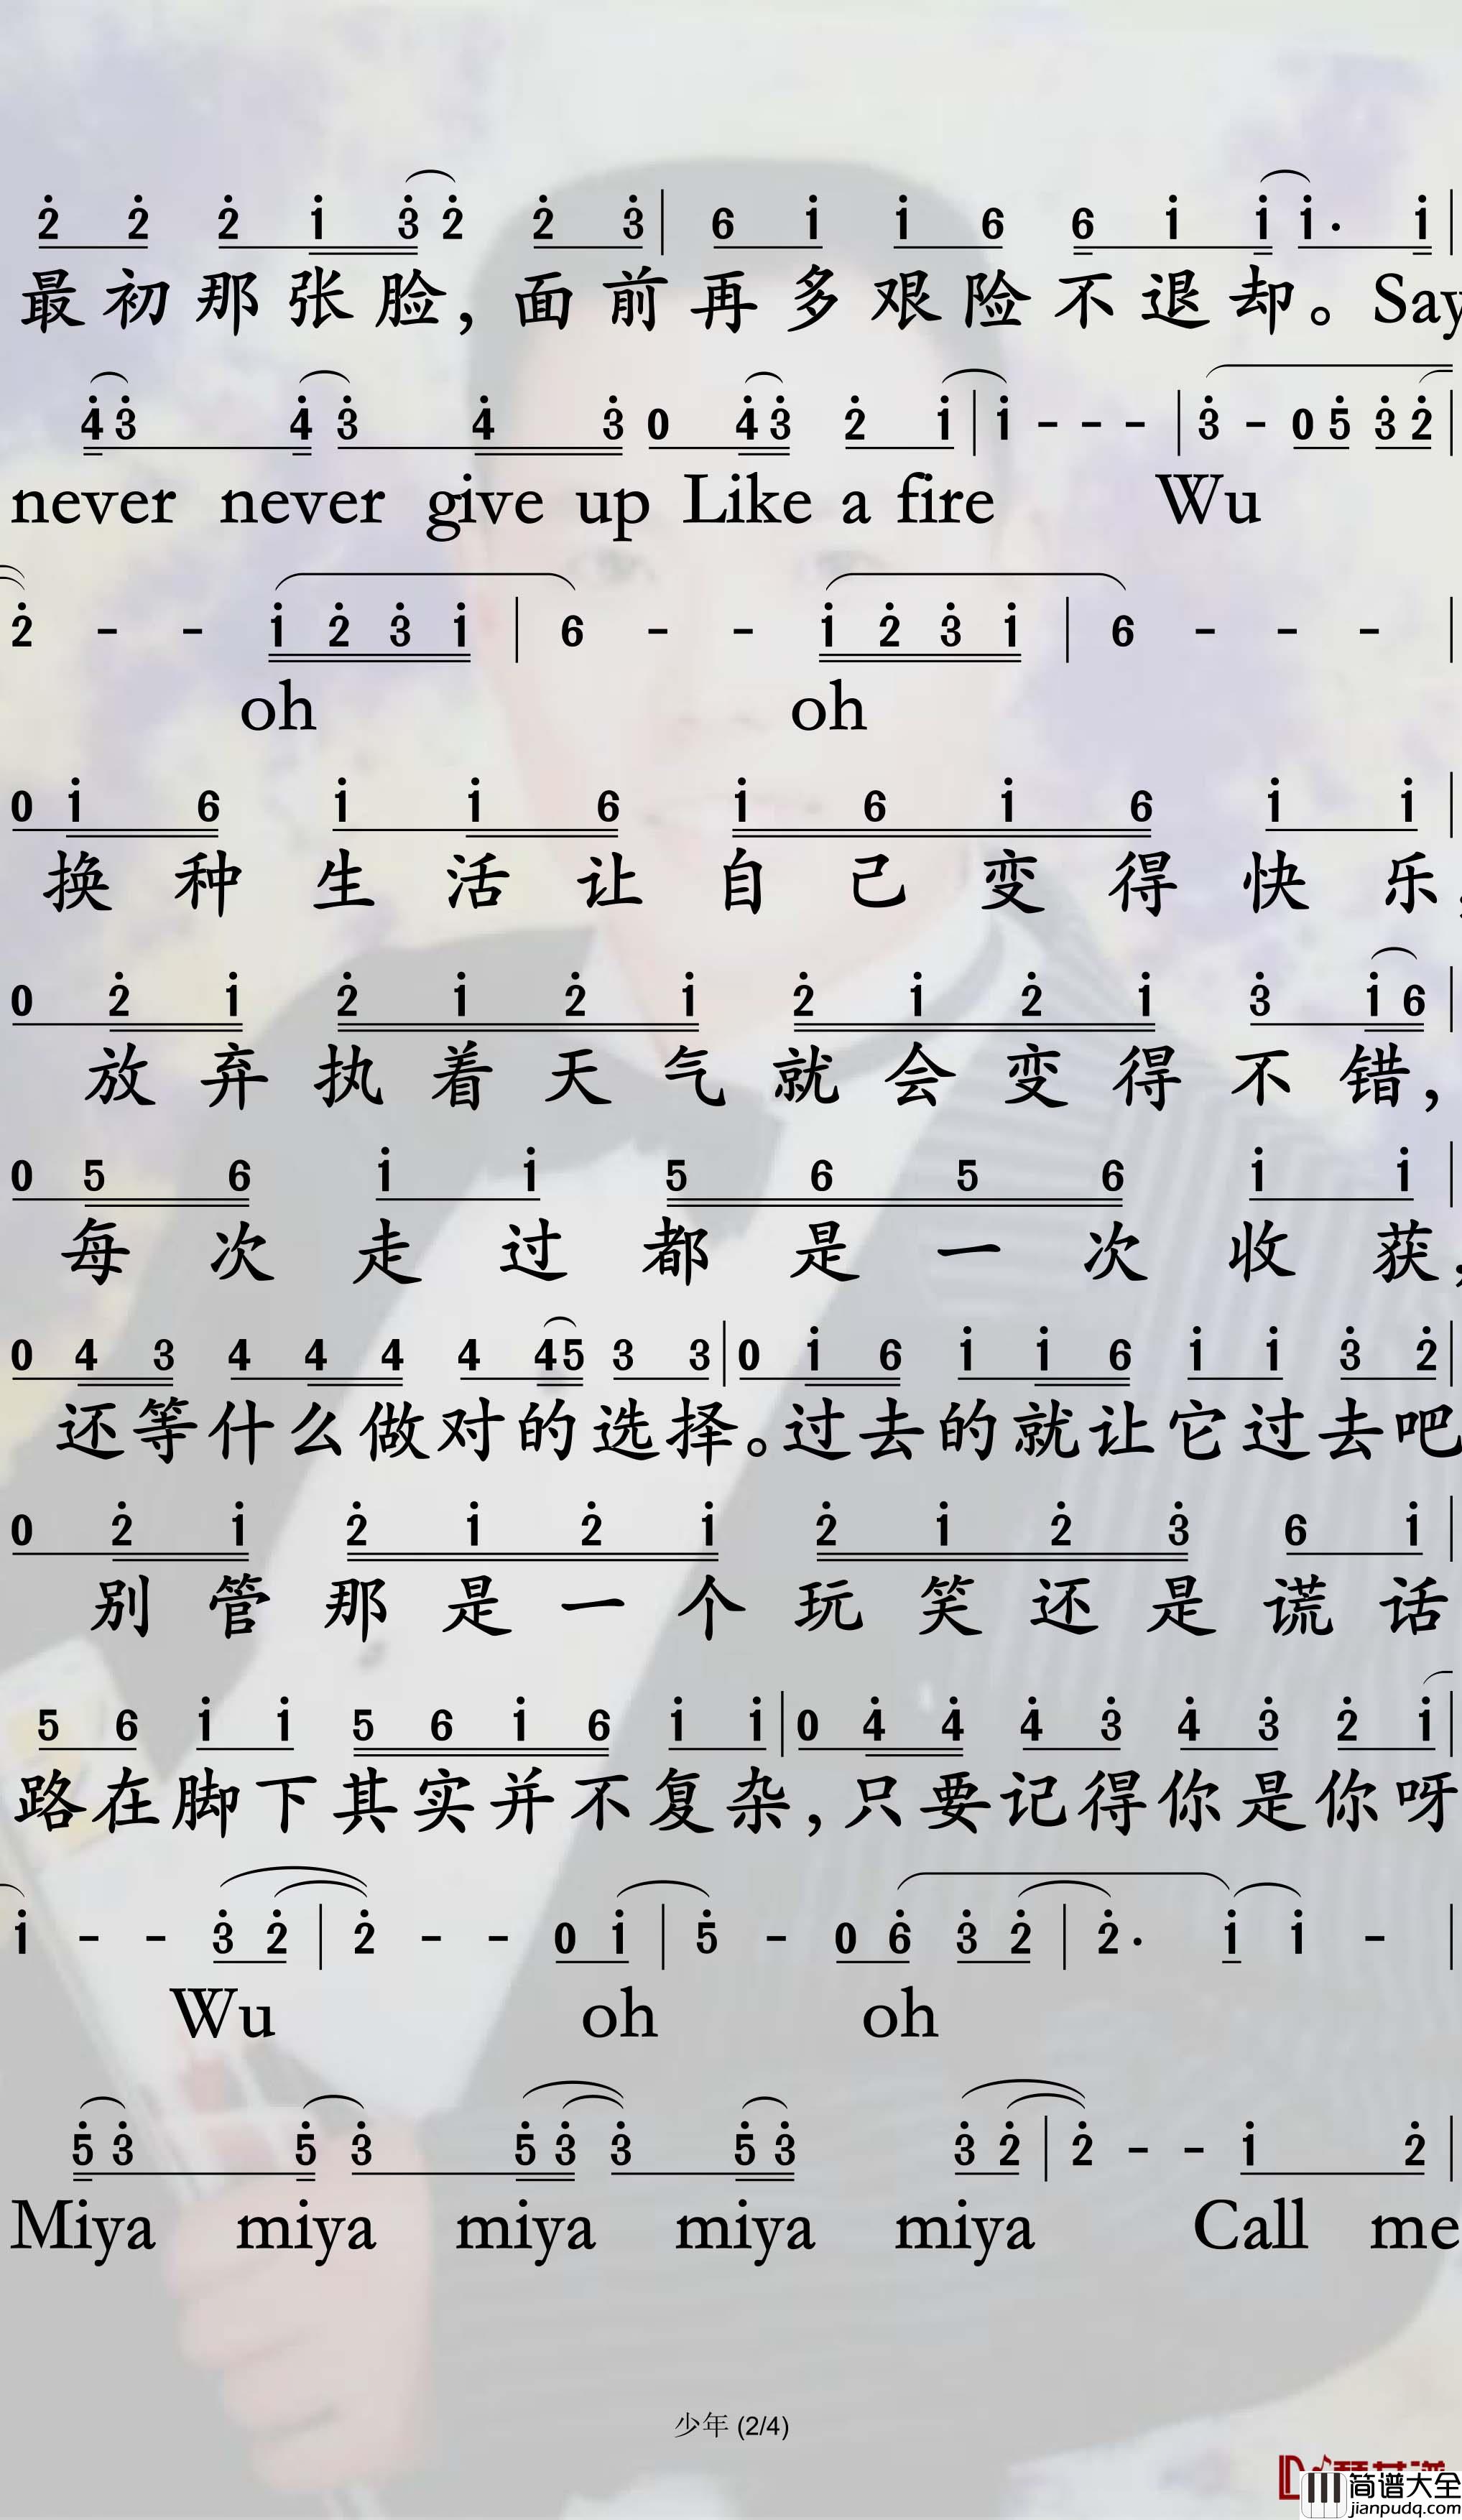 2̇ 2̇ 2̇ 1̇ 3̇ 2̇ 2̇ 3̇ | 6 1̇ 1̇ 6 6 1̇ 1̇ 1̇· 1̇ |
最初那张脸，面前再多艰险不退却。Say
4̇ 3̇ 4̇ 3̇ 4̇ 3̇ 0 4̇ 3̇ 2̇ 1̇ | 1̇ - - - | 3̇ - 0 5̇ 3̇ 2̇ |
never never give up Like a fire Wu
2̇ - - 1̇ 2̇ 3̇ 1̇ | 6 - - 1̇ 2̇ 3̇ 1̇ | 6 - - - |
oh oh
0 1̇ 6 1̇ 1̇ 6 1̇ 6 1̇ 6 1̇ 1̇ |
换种生活让自己变得快乐，
0 2̇ 1̇ 2̇ 1̇ 2̇ 1̇ 2̇ 1̇ 2̇ 1̇ 3̇ 1̇ 6 |
放弃执着天气就会变得不错，
0 5 6 1̇ 1̇ 5 6 5 6 1̇ 1̇ |
每次走过都是一次收获，
0 4 3 4 4 4 4 4 5 3 3 | 0 1̇ 6 1̇ 1̇ 6 1̇ 1̇ 3̇ 2̇ |
还等什么做对的选择。过去的就让它过去吧
0 2̇ 1̇ 2̇ 1̇ 2̇ 1̇ 2̇ 1̇ 2̇ 3̇ 6 1̇ |
别管那是一个玩笑还是谎话
5 6 1̇ 1̇ 5 6 1̇ 6 1̇ 1̇ | 0 4̇ 4̇ 4̇ 3̇ 4̇ 3̇ 2̇ 1̇ |
路在脚下其实并不复杂，只要记得你是你呀
1̇ - - 3̇ 2̇ | 2̇ - - 0 1̇ | 5̇ - 0 6̇ 3̇ 2̇ | 2̇· 1̇ 1̇ - |
Wu oh oh
5̇ 3̇ 5̇ 3̇ 5̇ 3̇ 3̇ 5̇ 3̇ 3̇ 2̇ | 2̇ - - 1̇ 2̇ |
Miya miya miya miya miya Call me
少年 (2/4)
简谱大全
jianpudq.com